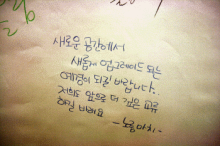 새로운 공간에서
새롭게 업그레이드 되는
예경이 되길 바랍니다..
저희도 앞으로 더 깊은 교류
하길 바래요
- 노릉아치 -